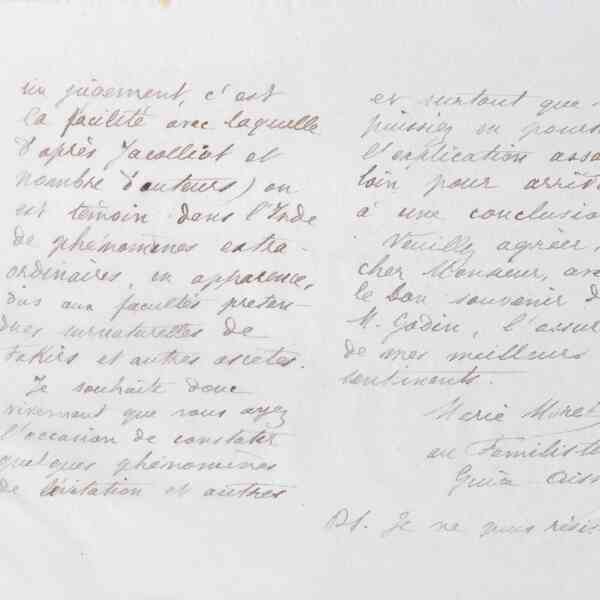 un jugement, c'est
la facilité avec laquelle
d'après Jacolliot et
nombre d'auteurs) on
est témoin dans l'Inde
de phénomènes extra-
ordinaires, en apparence,
dus aux facultés préten-
dues surnaturelles de
Fakirs et autres ascètes.
Je souhaite donc
vivement que vous ayez
l'occasion de constater
quelques phénomènes
de lévitation et autres
et surtout que
puissiez en pours
l'explication assez
loin pour arriv
à une conclusion
Veuillez agréer,
cher Monsieur, avec
le bon souvenir d
M. Godin, l'assur
de mes meilleurs
sentiments.
Marie Moret
au Familistè
Guise Aisn
PS. Je ne puis résis